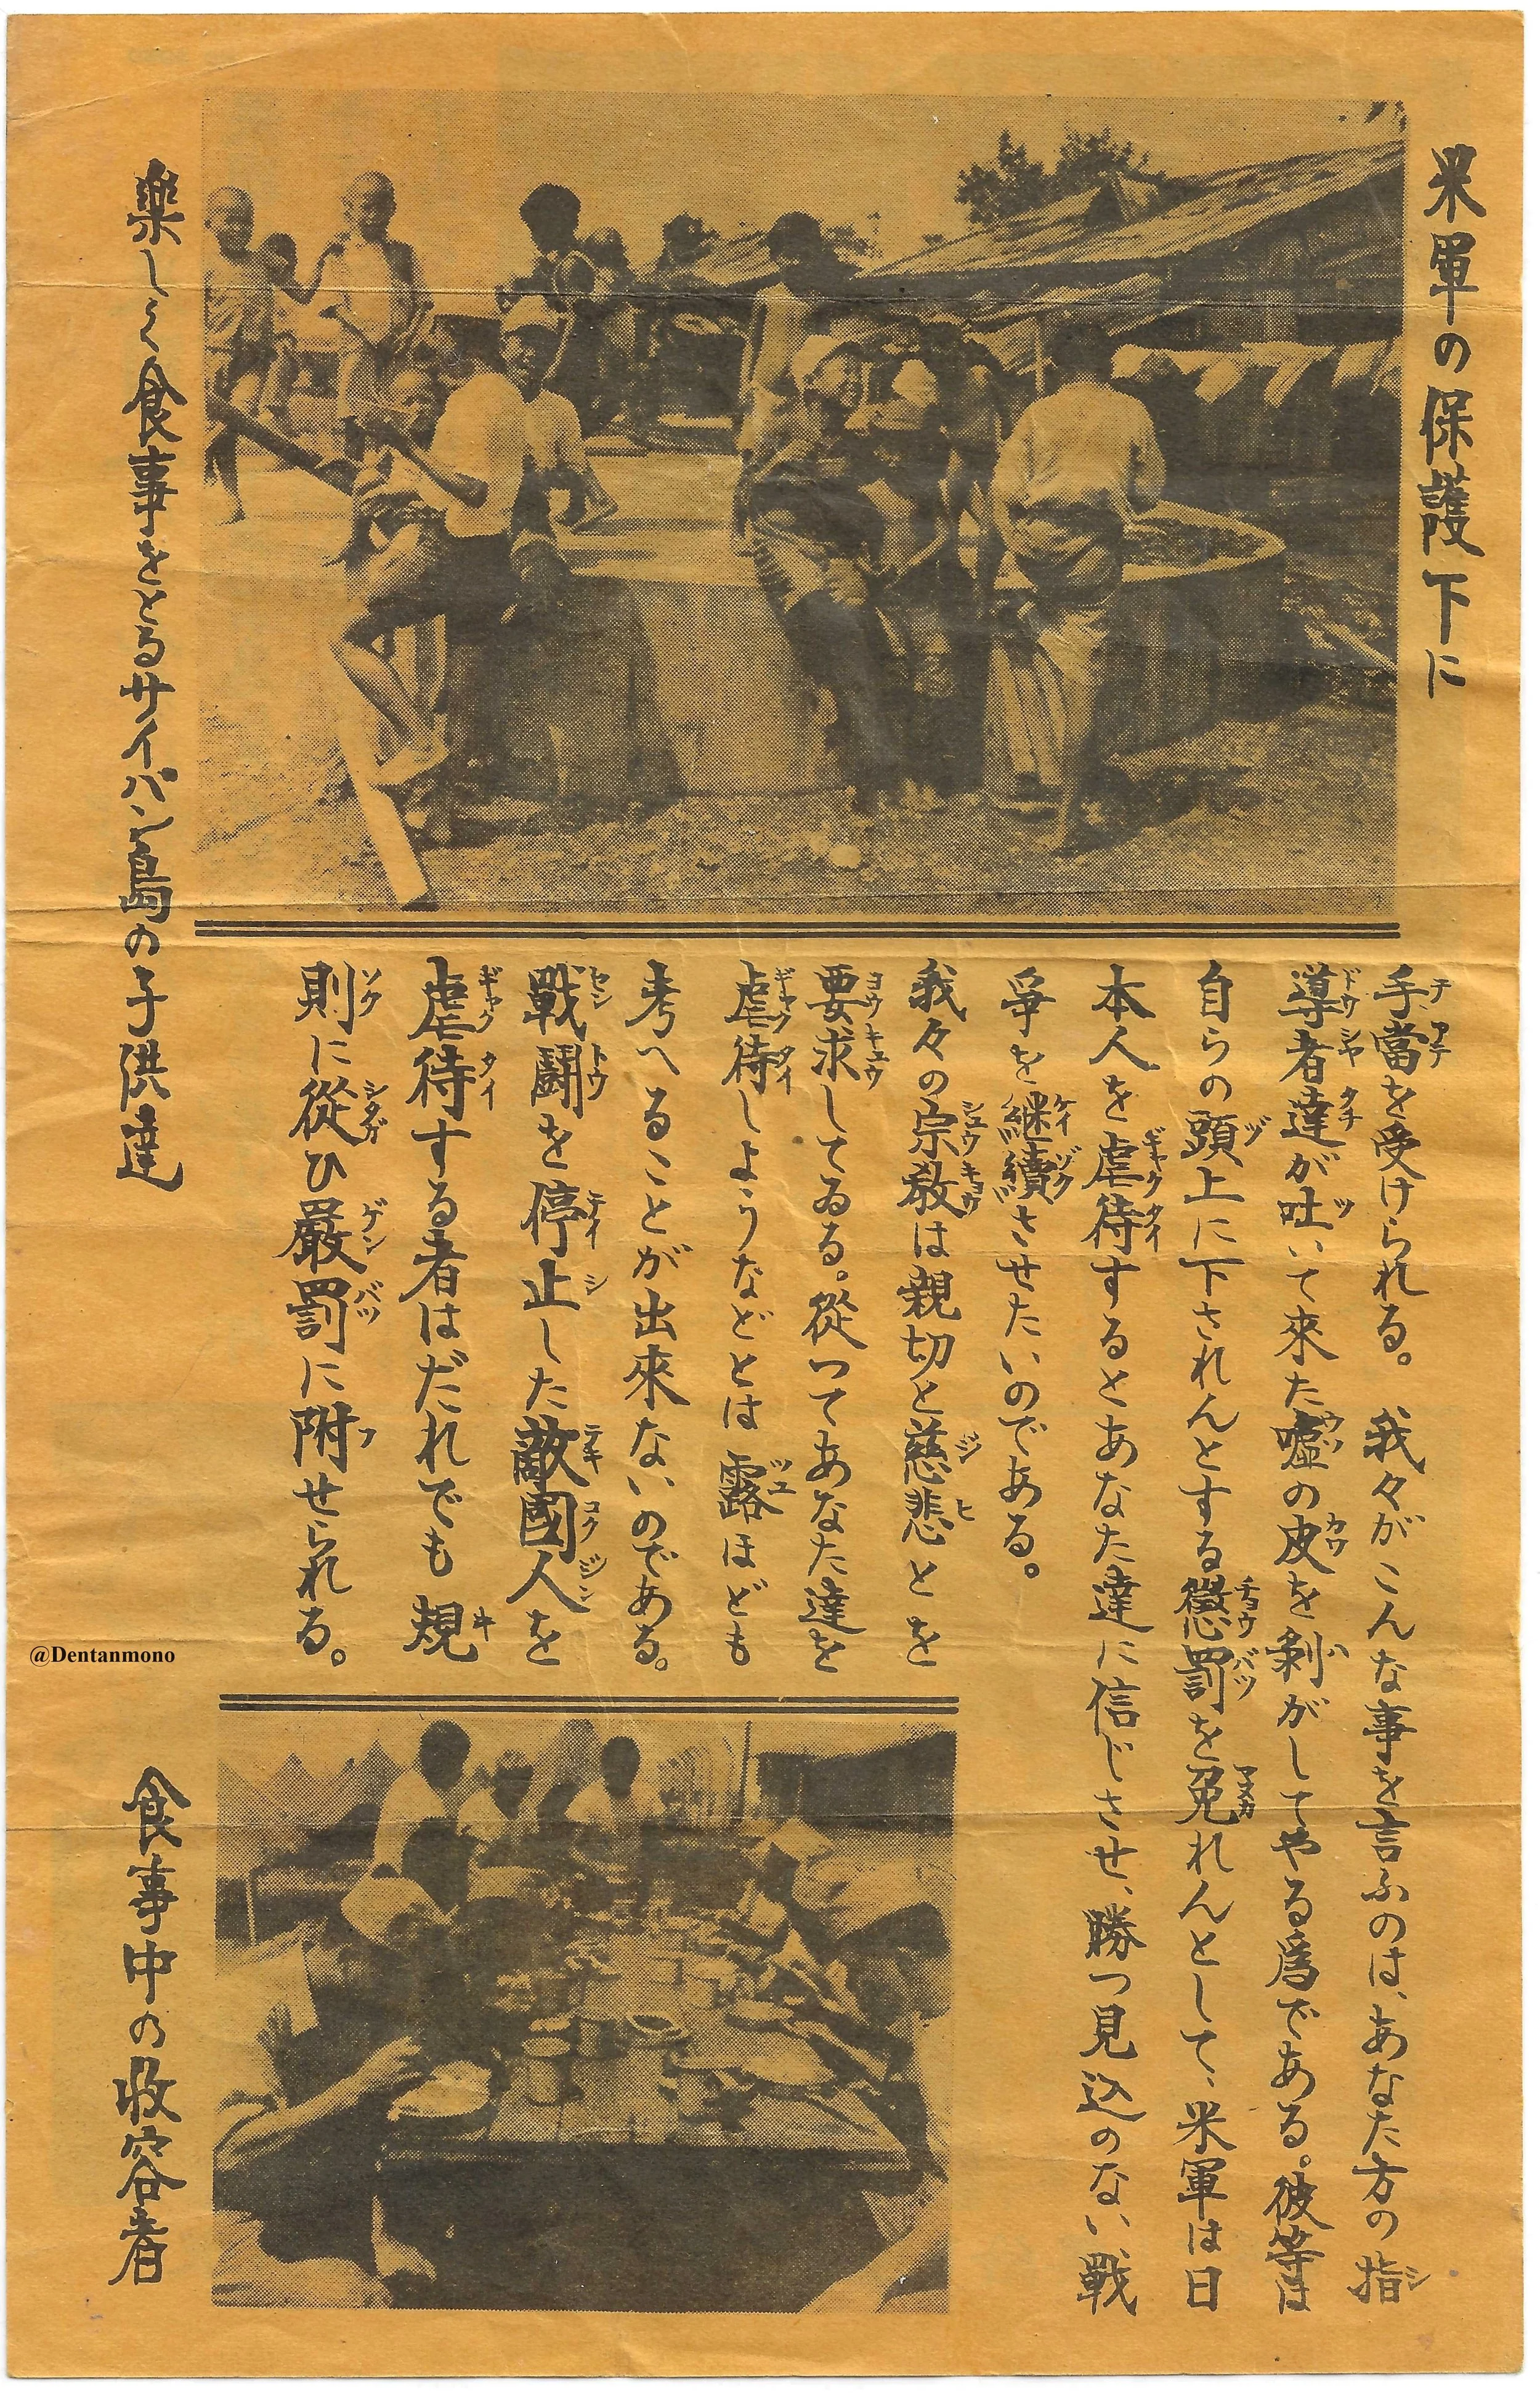 米軍の保護下に
楽しく食事をとるサイパン島の子供達
手當を受けられる。我々がこんな事を言ふのは、あなた方の指
導者達が吐いて來た嘘の皮を剥がしてやる爲である。彼等は
自らの頭上に下されんとする懲罰を免れんとして、米軍は日
本人を虐待するとあなた達に信じさせ、勝つ見込のない戰
爭を継續させたいのである。
我々の宗教は親切と慈悲とを
要求してゐる。從つてあなた達を
虐待しようなどとは露ほども
考へることが出來ないのである。
戰鬪を停止した敵國人を
虐待する者はだれでも規
則に從ひ嚴罰に附せられる。
食事中の收容者
@Dentanmono